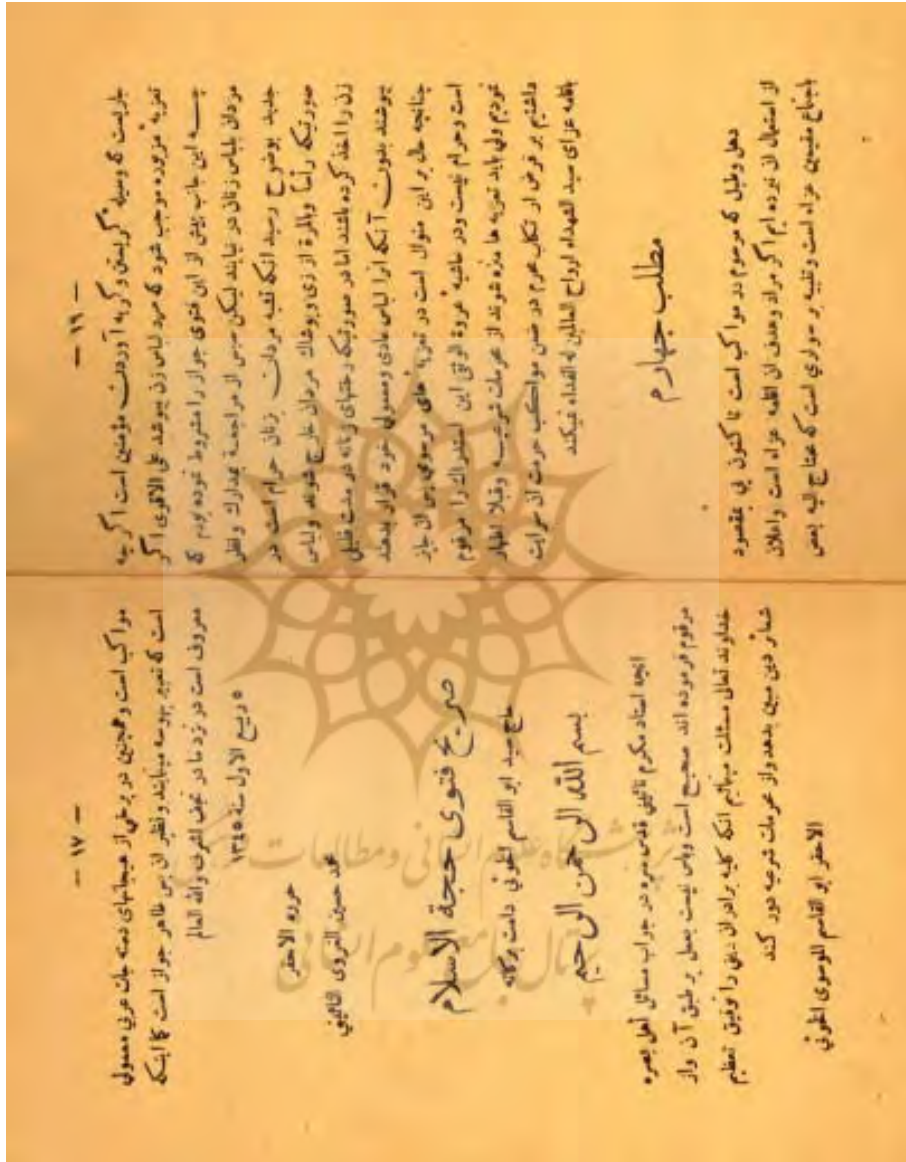 — ١٦ —
جاریست که وسیلهٔ گریستن و گریه آوردن مؤمنین است اگر چه
تعزیهٔ مزبوره موجب شود که مرد لباس زن بپوشد علی الاقوی اگر
چه این جانب پیش از این فتوی جواز را مشروط نموده بودم که
مردان بلباس زنان در نیایند لیکن سپس از مراجعهٔ بمدارك و نظر
جدید بوضوح رسید انکه تشبه مردان بزنان حرام است در
صورتیکه رأساً وبالمرة از زی و پوشاك مردان خارج شوند ولباس
زن را اخذ کرده باشند اما در صورتیکه رختهای زنانه در مدت قلیلی
بپوشند بدون آنکه انرا لباس عادی ومعمولی خود قرار بدهند
چنانچه حال بر این منوال است در تعزیه های مرسوم پس ان جایز
است وحرام نیست ودر حاشیهٔ عروة الوثقی این استدراك را مرقوم
نمودیم ولی باید تعزیه ها منزه شوند از محرمات شرعیه وقبلا اظهار
داشتیم بر فرض ارتکاب محرم در ضمن مواکب حرمت ان سرایت
باقامه عزای سید الشهداء ارواح العالمین له الفداء نمیکند
مطلب چهارم
دهل وطبل که مرسوم در مواکب است تا کنون پی بمقصود
از استعمال ان نبرده ایم اگر مراد وهدف ان اقامه عزاء است واعلان
باجتماع مقیمین عزاء است وتنبیه بر سواری است که محتاج الیه بعض
— ١٧ —
مواکب است و همچنین در برخی از هیجانهای دسته جات عربی معمولی
است که تعبیر بهوسه مینمایند ونظیر ان پس ظاهر جواز است کما اینکه
معروف است در نزد ما در نجف اشرف والله العالم
٥ ربیع الاول سنة ١٣٤٥
حرره الاحقر
محمد حسین الغروی النائینی
صریح فتوی حجة الاسلام
حاج سید ابو القاسم الخوئی دامت برکاته
بسم الله الرحمن الرحیم
انچه استاد مکرم نائینی قدس سره در جواب مسائل أهل بصره
مرقوم فرموده اند صحیح است وباس نیست بعمل بر طبق آن واز
خداوند تعالی مسئلت مینمائیم انکه کلیه برادران دینی را توفیق تعظیم
شعائر دین مبین بدهد واز محرمات شرعیه دور کند
الاحقر ابو القاسم الموسوی الخوئی
پژوهشگاه علوم انسانی و مطالعات فرهنگی
پرتال جامع علوم انسانی